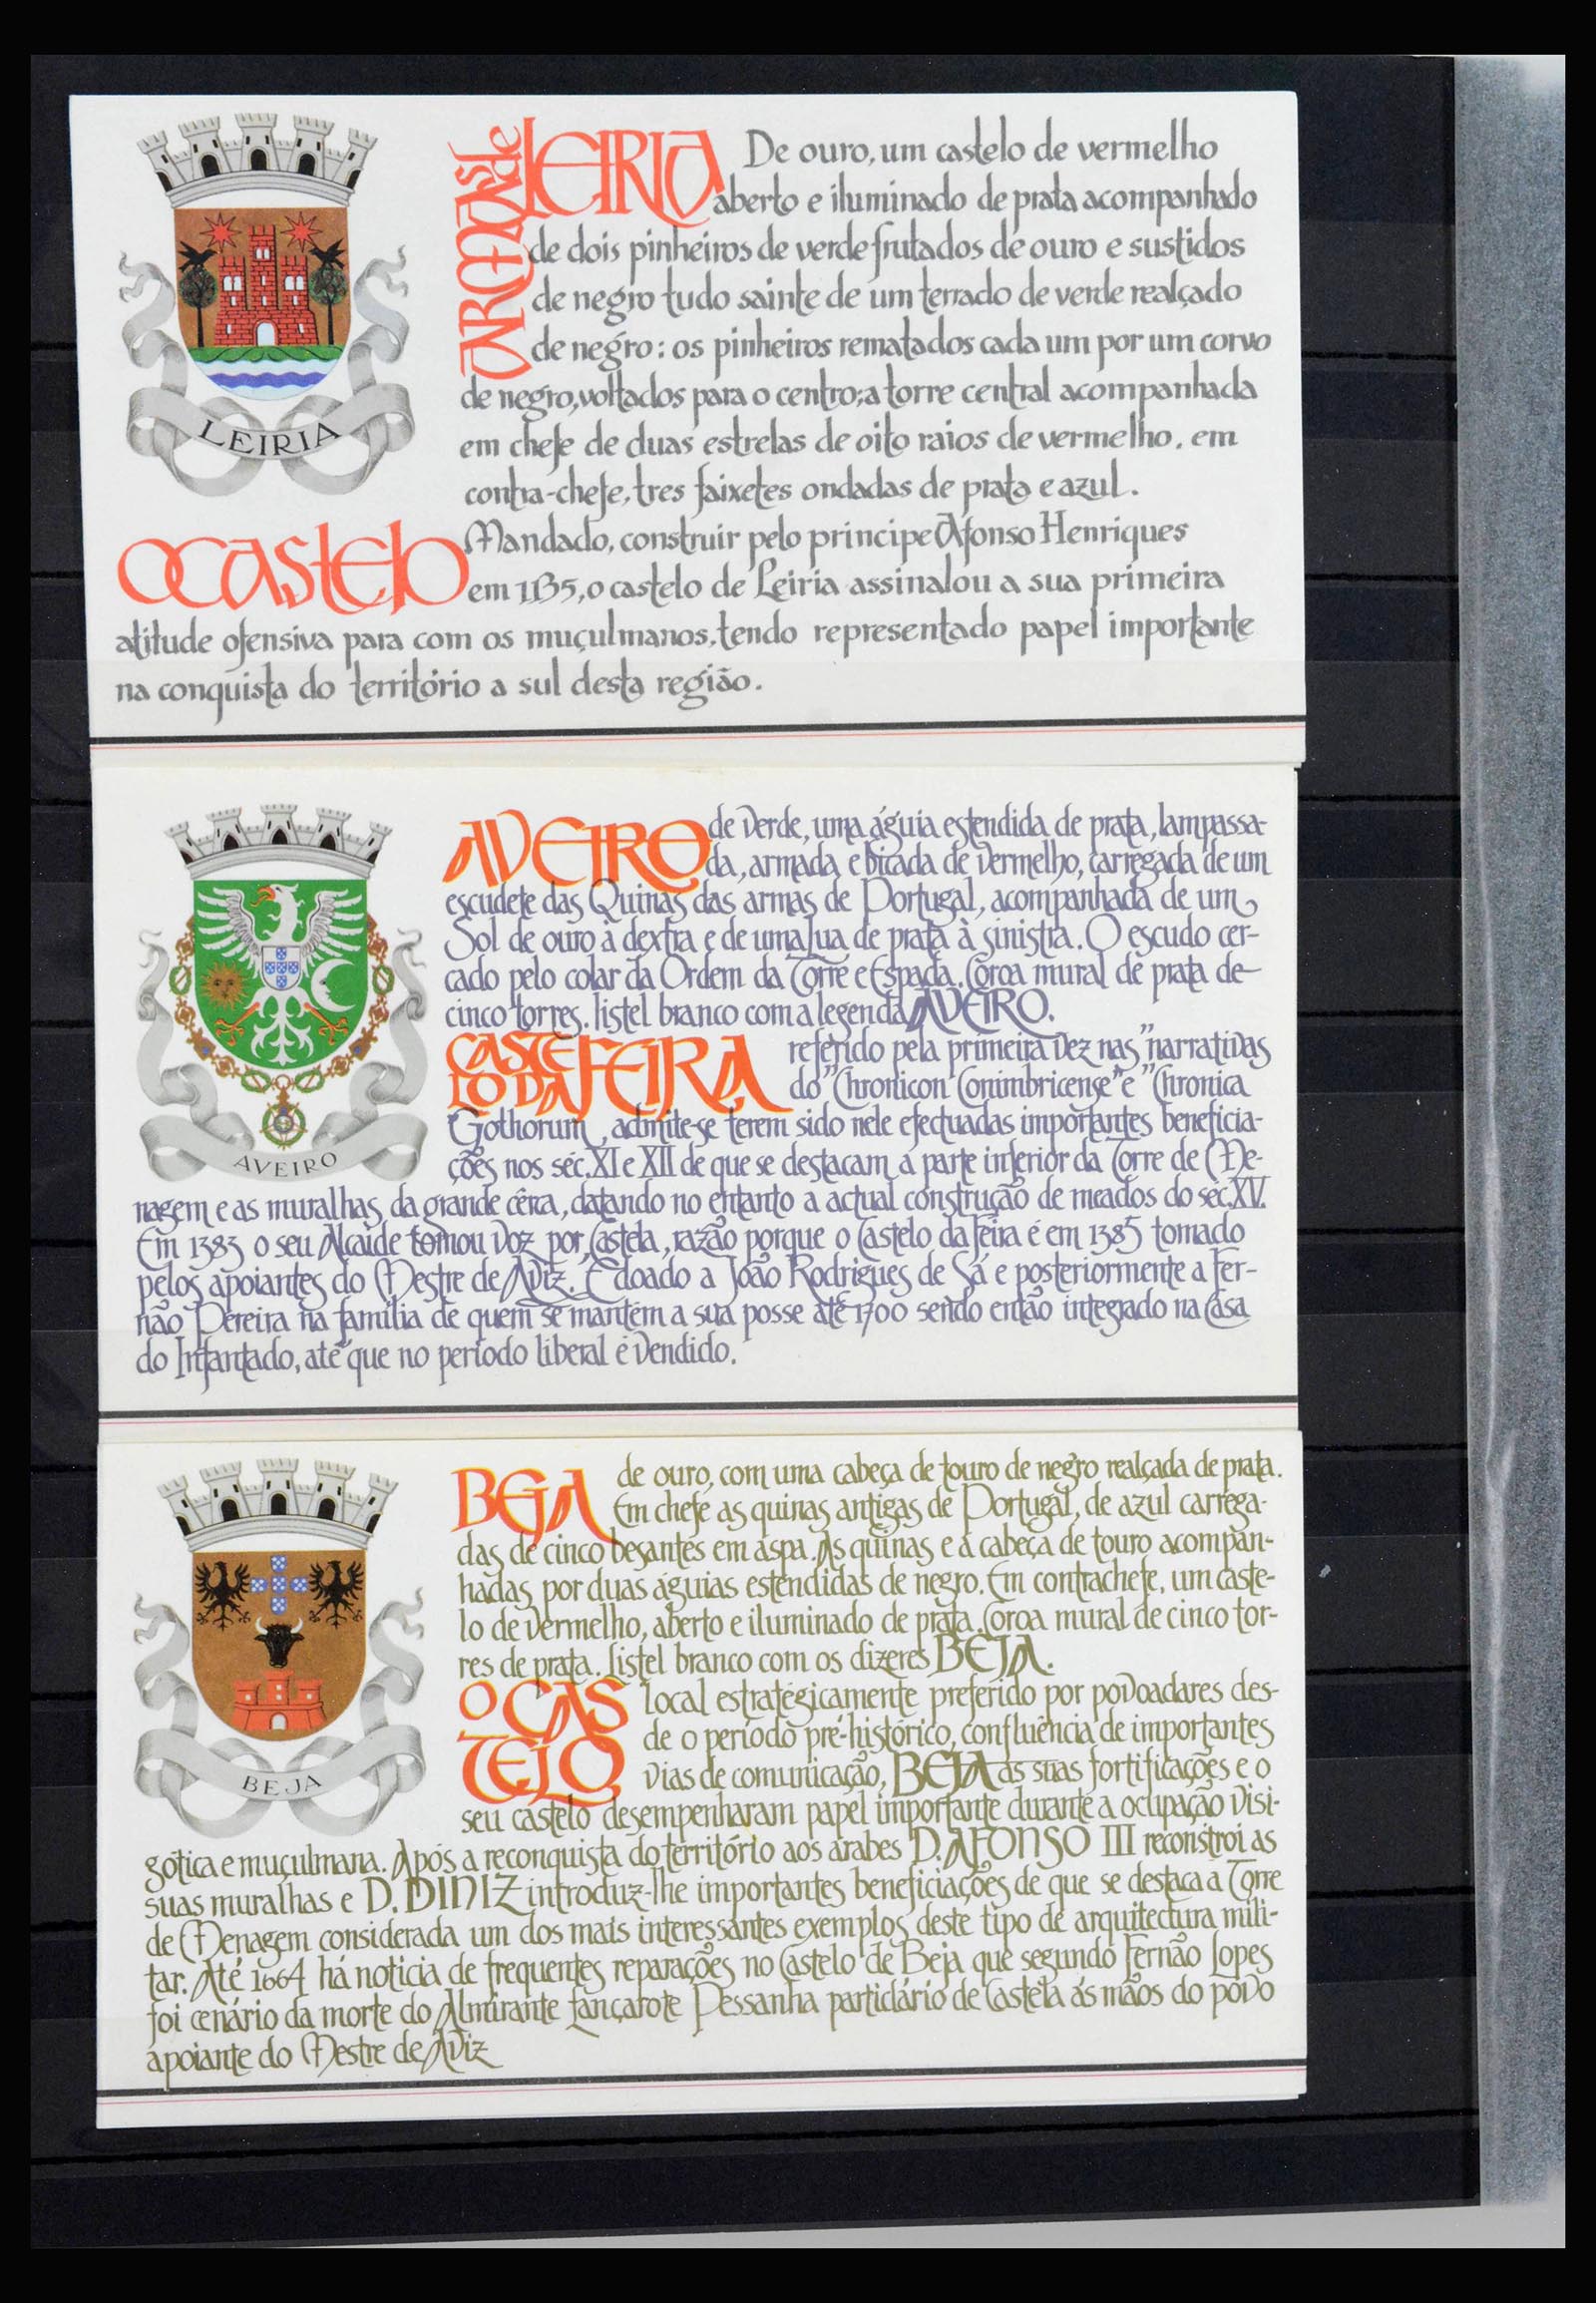 ARMAS de LEIRIA De ouro, um castelo de vermelho
aberto e iluminado de prata acompanhado
de dois pinheiros de verde frutados de ouro e sustidos
de negro tudo sainte de um terrado de verde realçado
de negro: os pinheiros rematados cada um por um corvo
de negro, voltados para o centro; a torre central acompanhada
em chefe de duas estrelas de oito raios de vermelho. em
contra-chefe, tres faixetes ondadas de prata e azul.
LEIRIA
O CASTELO Mandado, construir pelo principe Afonso Henriques
em 1135, o castelo de Leiria assinalou a sua primeira
atitude ofensiva para com os muçulmanos, tendo representado papel importante
na conquista do território a sul desta região.
AVEIRO de verde, uma águia estendida de prata, lampassa-
da, armada e bicada de vermelho, carregada de um
escudete das Quinas das armas de Portugal, acompanhada de um
Sol de ouro à dextra e de uma lua de prata à sinistra. O escudo cer-
cado pelo colar da Ordem da Torre e Espada. Coroa mural de prata de
cinco torres. listel branco com a legenda AVEIRO.
AVEIRO
CASTELO DA FEIRA referido pela primeira vez nas "narrativas
do "Chronicon Conimbricense" e "Chronica
Gothorum", admite-se terem sido nele efectuadas importantes beneficia-
ções nos séc. XI e XII de que se destacam a parte inferior da Torre de Me-
nagem e as muralhas da grande cêrca, datando no entanto a actual construção de meados do séc. XV.
Em 1383 o seu Alcaide tomou voz por Castela, razão porque o Castelo da Feira é em 1385 tomado
pelos apoiantes do Mestre de Aviz. É doado a João Rodrigues de Sá e posteriormente a Fer-
não Pereira na família de quem se mantém a sua posse até 1700 sendo então integrado na Casa
do Infantado, até que no período liberal é vendido.
BEJA de ouro, com uma cabeça de touro de negro realçada de prata.
Em chefe as quinas antigas de Portugal, de azul carrega-
das de cinco besantes em aspa. As quinas e a cabeça de touro acompan-
hadas por duas águias estendidas de negro. Em contrachefe, um caste-
lo de vermelho, aberto e iluminado de prata. Coroa mural de cinco tor-
res de prata. listel branco com os dizeres BEJA.
BEJA
O CASTELO local estratégicamente preferido por povoadares des-
de o período pré-histórico, confluência de importantes
vias de comunicação, BEJA as suas fortificações e o
seu castelo desempenharam papel importante durante a ocupação visi-
gótica e muçulmana. Após a reconquista do território aos árabes D. AFONSO III reconstroi as
suas muralhas e D. DINIZ introduz-lhe importantes beneficiações de que se destaca a Torre
de Menagem considerada um dos mais interessantes exemplos deste tipo de arquitectura mili-
tar. Até 1664 há noticia de frequentes reparações no Castelo de Beja que segundo Fernão Lopes
foi cenário da morte do Almirante Lançarote Pessanha particlário de Castela ás mãos do povo
apoiante do Mestre de Aviz